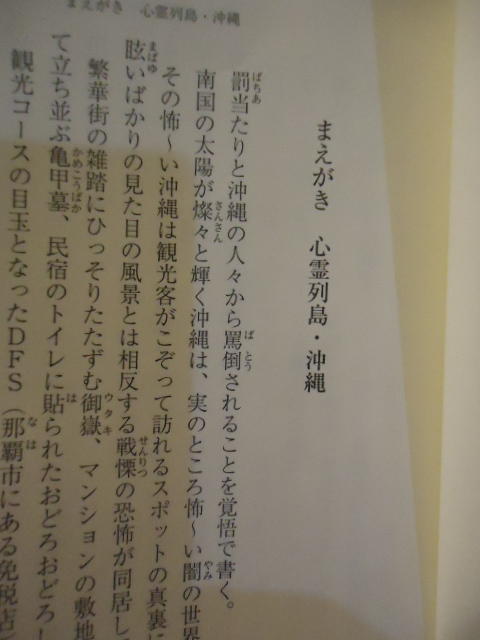 まえがき 心霊列島・沖縄
まえがき 心霊列島・沖縄
罰当たりと沖縄の人々から罵倒されることを覚悟で書く。
南国の太陽が燦々と輝く沖縄は、実のところ怖〜い闇の世界
その怖〜い沖縄は観光客がこぞって訪れるスポットの真裏に
眩いばかりの見た目の風景とは相反する戦慄の恐怖が同居し
繁華街の雑踏にひっそりたたずむ御嶽、マンションの敷地
て立ち並ぶ亀甲墓、民宿のトイレに貼られたおどろおどろし
観光コースの目玉となったDFS（那覇市にある免税店